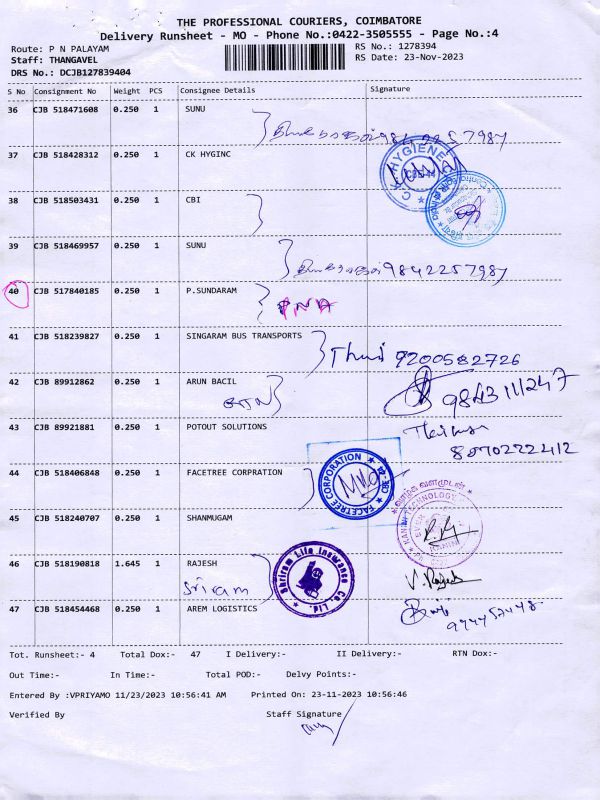 THE PROFESSIONAL COURIERS, COIMBATORE
Delivery Runsheet - MO - Phone No.:0422-3505555 - Page No.:4
Route: P N PALAYAM RS No.: 1278394
Staff: THANGAVEL RS Date: 23-Nov-2023
DRS No.: DCJB127839404
S No Consignment No Weight PCS Consignee Details Signature
36 CJB 518471608 0.250 1 SUNU
37 CJB 518428312 0.250 1 CK HYGINC
C.K. HYGIENE
38 CJB 518503431 0.250 1 CBI
39 CJB 518469957 0.250 1 SUNU
9842257987
40 CJB 517840185 0.250 1 P.SUNDARAM
PNA
41 CJB 518239827 0.250 1 SINGARAM BUS TRANSPORTS
9200582726
42 CJB 89912862 0.250 1 ARUN BACIL
9843111247
43 CJB 89921881 0.250 1 POTOUT SOLUTIONS
44 CJB 518406848 0.250 1 FACETREE CORPRATION
FACETREE CORPORATION
45 CJB 518240707 0.250 1 SHANMUGAM
வாழ்க வளமுடன்
TECHNOLOGY
46 CJB 518190818 1.645 1 RAJESH
Sriram
Shriram Life Insurance Co. Ltd.
V. Rajesh
47 CJB 518454468 0.250 1 AREM LOGISTICS
Tot. Runsheet:- 4 Total Dox:- 47 I Delivery:- II Delivery:- RTN Dox:-
Out Time:- In Time:- Total POD:- Delvy Points:-
Entered By :VPRIYAMO 11/23/2023 10:56:41 AM Printed On: 23-11-2023 10:56:46
Verified By Staff Signature